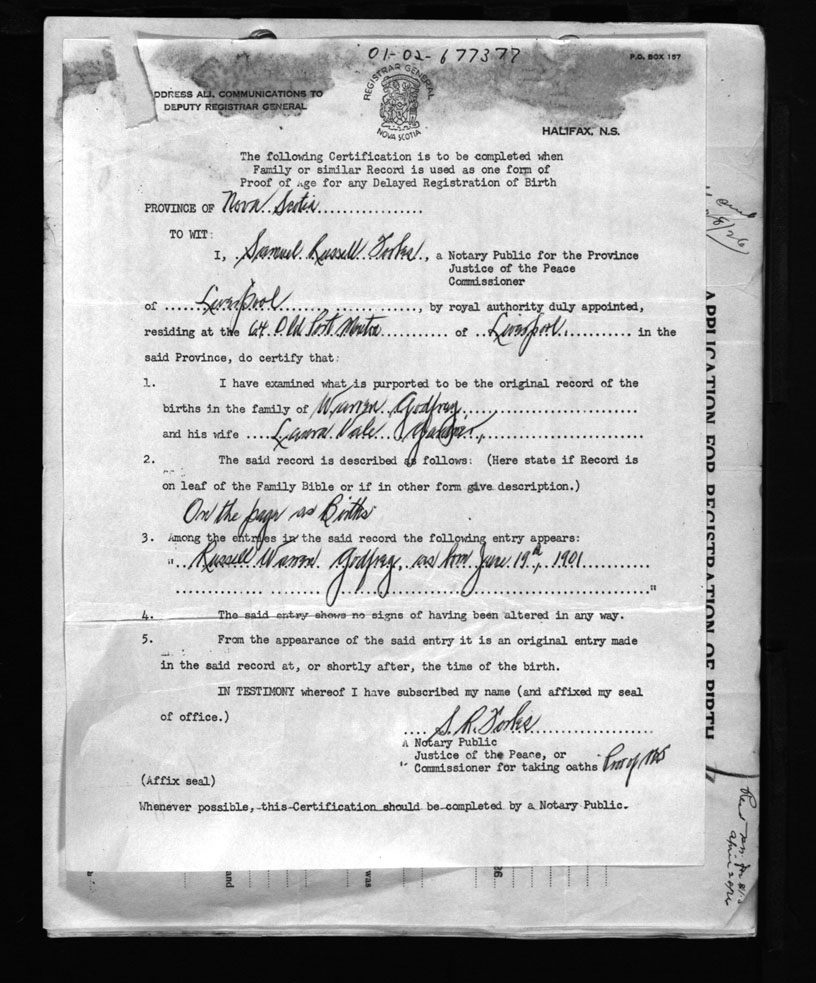 01-02-677377
P.O. BOX 157
DDRESS ALL COMMUNICATIONS TO
DEPUTY REGISTRAR GENERAL
REGISTRAR GENERAL
NOVA SCOTIA
HALIFAX, N.S.
The following Certification is to be completed when
Family or similar Record is used as one form of
Proof of Age for any Delayed Registration of Birth
PROVINCE OF Nova Scotia
TO WIT:
I, Samuel Russell Forbes, a Notary Public for the Province
Justice of the Peace
Commissioner
of Liverpool, by royal authority duly appointed,
residing at the 64 Old Port Mouton of Liverpool in the
said Province, do certify that:
1. I have examined what is purported to be the original record of the
births in the family of Warren Godfrey
and his wife Laura Dale
2. The said record is described as follows: (Here state if Record is
on leaf of the Family Bible or if in other form give description.)
On the page as Births
3. Among the entries in the said record the following entry appears:
" Russell Warren Godfrey was born June 19th, 1901
"
4. The said entry shows no signs of having been altered in any way.
5. From the appearance of the said entry it is an original entry made
in the said record at, or shortly after, the time of the birth.
IN TESTIMONY whereof I have subscribed my name (and affixed my seal
of office.)
S. R. Forbes
A Notary Public
Justice of the Peace, or
Commissioner for taking oaths Prov of NS
(Affix seal)
Whenever possible, this Certification should be completed by a Notary Public.
APPLICATION FOR REGISTRATION OF BIRTH
and
was